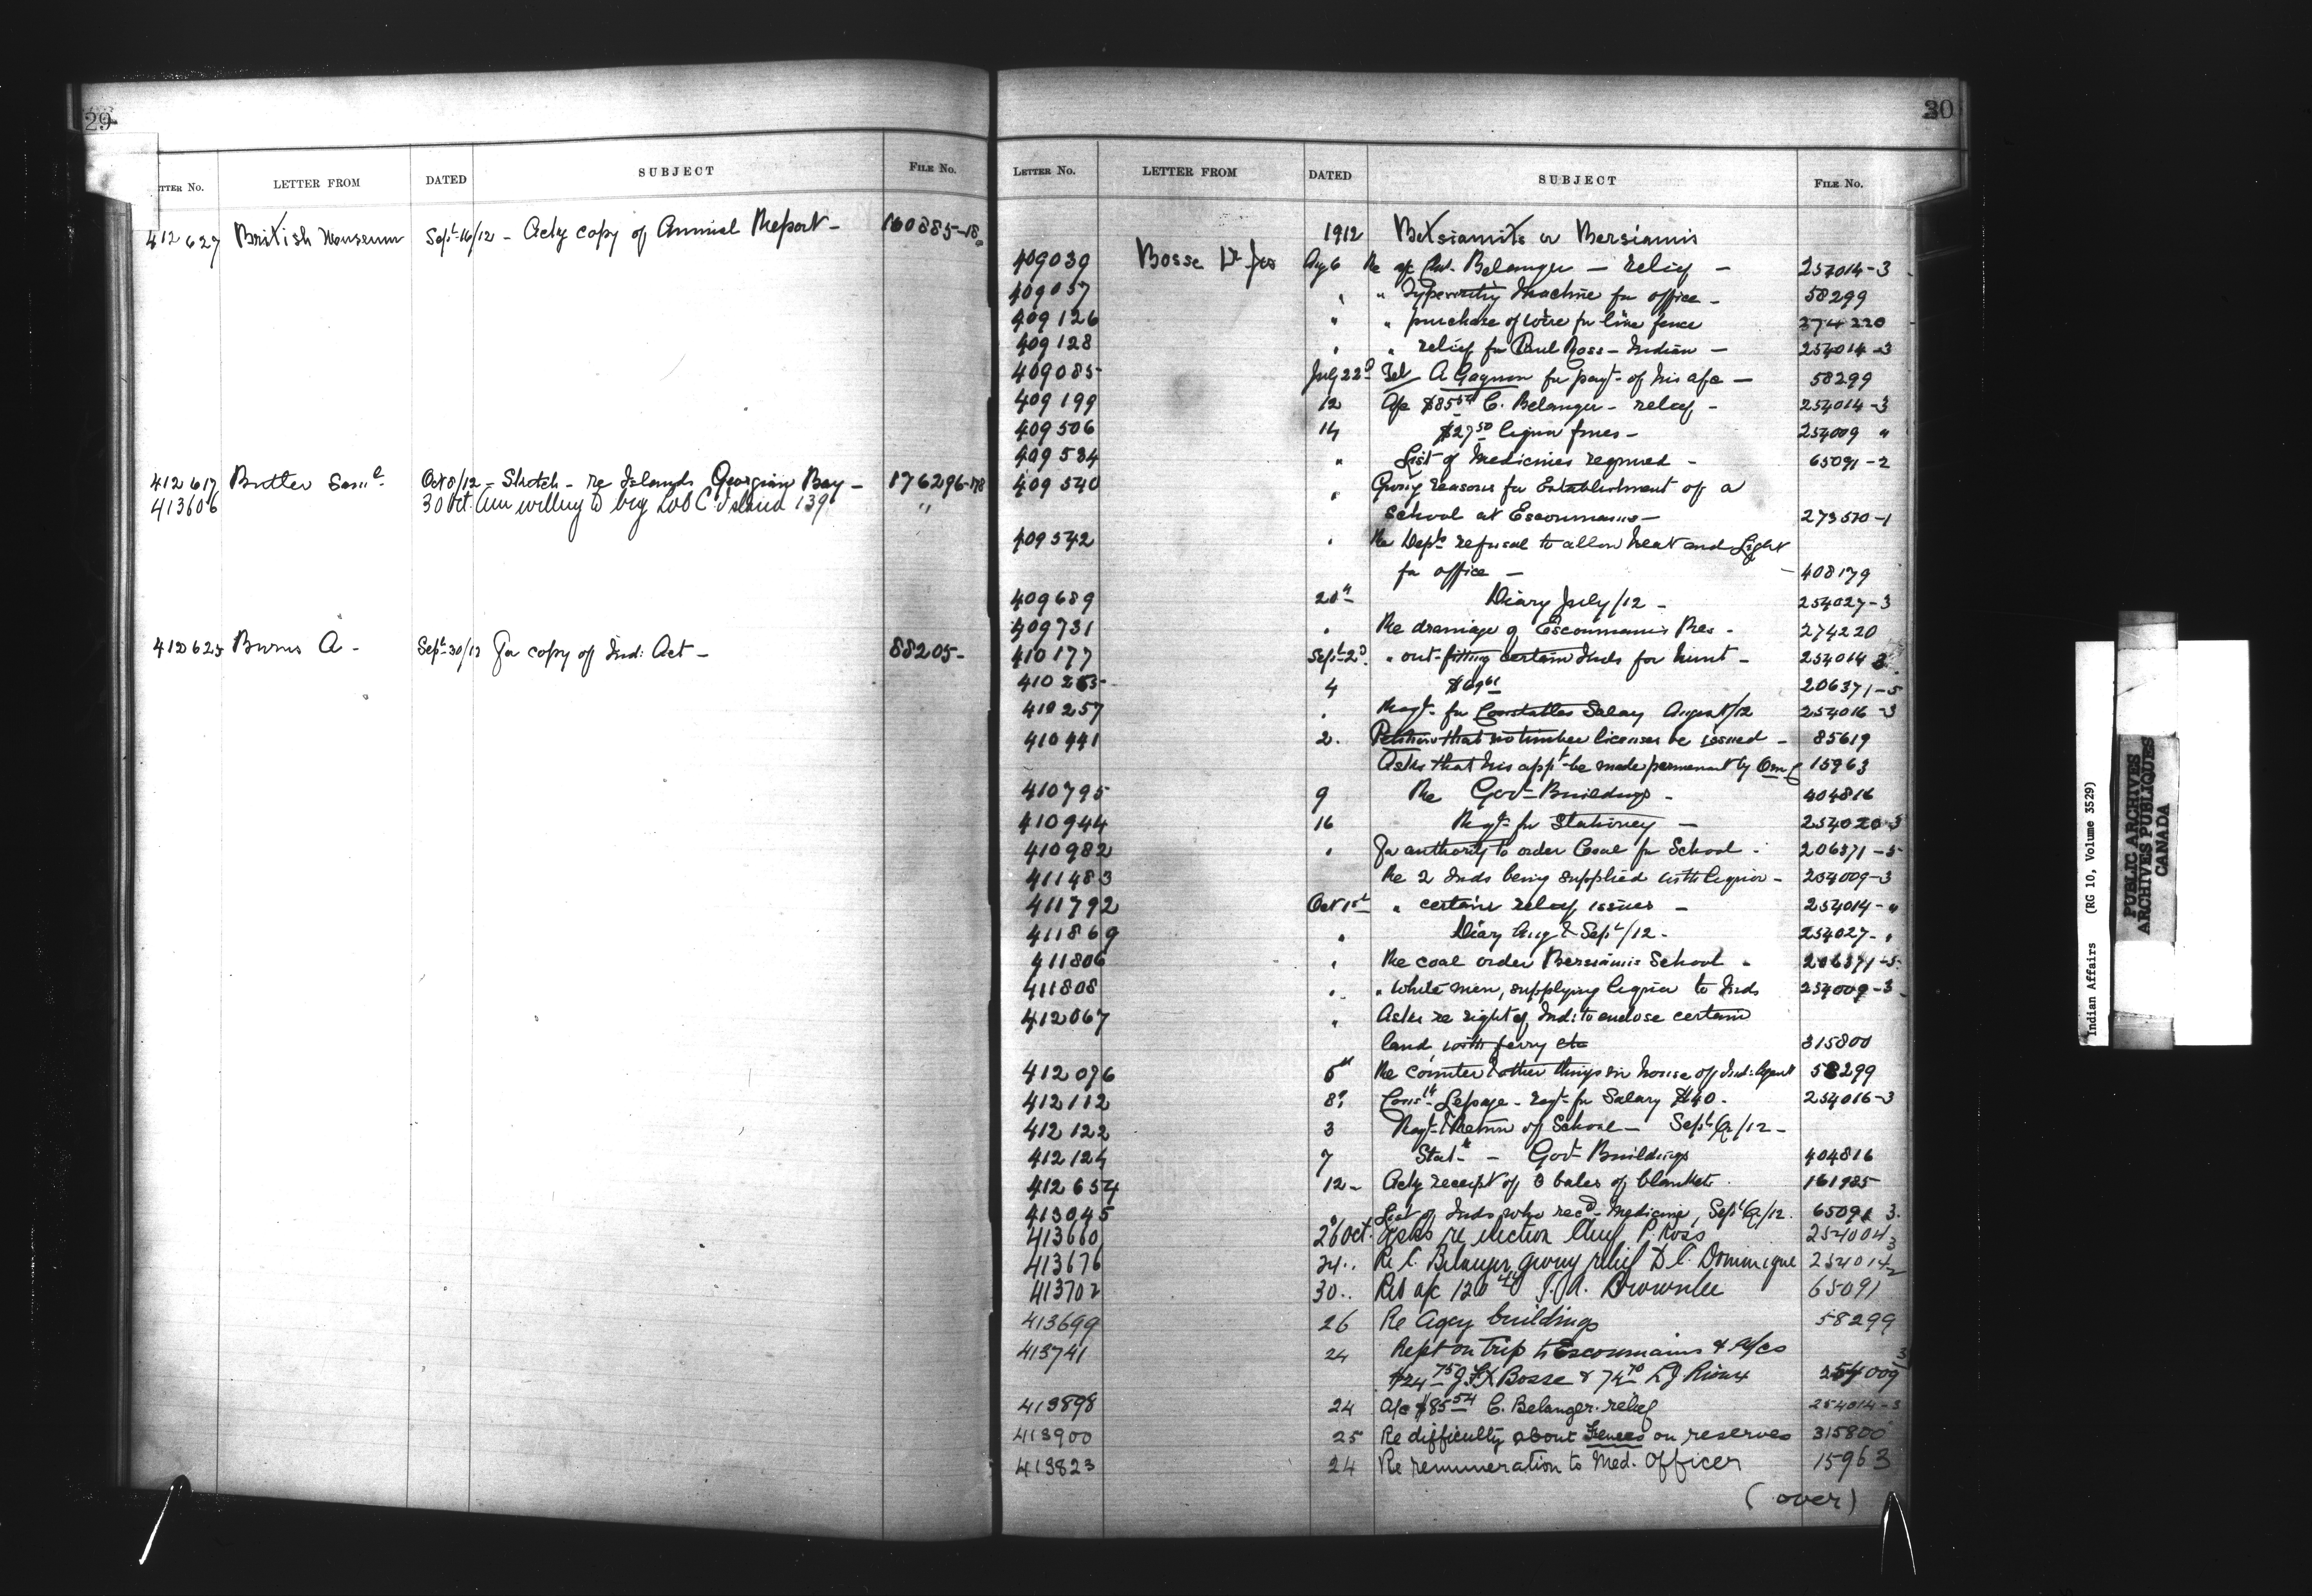 29
LETTER No. LETTER FROM DATED SUBJECT FILE No.
412627 British Museum Sept 16/12 - Ackg copy of Annual Report - 160885-18
412617 Butler Saml. Oct 8/12 - Sketch - re Islands Georgian Bay - 176296-178
413606 30 Oct. Am willing to buy Lot C. Island 139 "
412625 Burns A - Sept 30/12 For copy of Ind: Act - 88205-
30
LETTER No. LETTER FROM DATED SUBJECT FILE No.
1912 Betsiamits or Bersiamis
409039 Bosse Dr Jos Aug 6 Re a/c Belanger - relief - 254014-3
409057 " " Typewriting Machine for office - 58299
409126 " " purchase of wire for line fence 274220
409128 " " relief for Paul Ross - Indian - 254014-3
409085 July 22d Tel A Gagnon for payt of his a/c - 58299
409199 12 A/c $85.54 C. Belanger - relief - 254014-3
409506 14 $27.50 liquor fines - 254009 "
409534 " List of Medicines required - 65091-2
409540 " Giving reasons for Establishment of a
School at Escoumains - 273570-1
409542 " Re Dept's refusal to allow heat and Light
for office - 408179
409689 20th Diary July/12 - 254027-3
409731 " Re drainage of Escoumains Res - 274220
410177 Sept 2d. " out-fitting certain Inds for hunt - 254014 3
410255 4 $69.61 206371-5
410257 " Reqt for Constables Salary August/12 254016-3
410441 2. Petition that no timber licenses be issued - 85619
Asks that his appt be made permanent by 15963
410795 9 Re Govt Buildings - 404816
410944 16 Reqt for Stationery - 254020-3
410982 " For authority to order Coal for School - 206371-5
411483 Re 2 Inds being supplied with liquor - 254009-3
411792 Oct 1st " certain relief issues - 254014-"
411869 " Diary Aug & Sept/12 - 254027-"
411806 " Re coal order Bersiamis School - 206371-5
411808 " " White men, supplying liquor to Inds 254009-3
412067 " Asks re right of Ind: to enclose certain
land, with ferry etc 315800
412076 5th Re counter & other things in house of Ind: Agent 58299
412112 8th Const. Lepage - reqt for Salary $40 - 254016-3
412122 3 Reqt & Return of School - Sept Q/12 -
412124 7 Statt - Govt Buildings 404816
412654 12 - Ackg receipt of 3 bales of blankets. 161985
413045 " List of Inds who recd Medicine, Sept Q/12. 65091 3.
413660 26 Oct. Asks re election Chief P. Ross 254004 3
413676 24.. Re C. Belanger giving relief D C. Dominique 254014 2
413702 30.. Ret a/c 120.40 Brownlee 65091
413699 26 Re Agcy buildings 58299
413741 24 Rept on trip to Escoumains & a/cs
$24.75 J.F.X Bosse & 74.70 L J Rioux 254009 3
413898 24 A/c $85.54 C. Belanger. relief 254014-3
413900 25 Re difficulty about Fences on reserves 315800
413823 24 Re remuneration to Med. Officer 15963
(over)
Indian Affairs (RG 10, Volume 3529)
PUBLIC ARCHIVES
ARCHIVES PUBLIQUES
CANADA